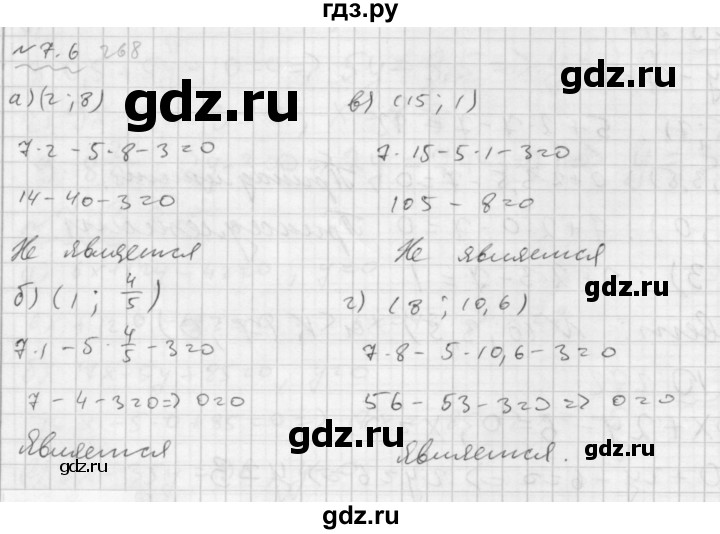 гдз.ру
№7.6 268
а) (2 ; 8)
7·2 - 5·8 - 3 = 0
14 - 40 - 3 = 0
Не является
б) (1 ; 4/5)
7·1 - 5·4/5 - 3 = 0
7 - 4 - 3 = 0 => 0 = 0
Является
в) (15 ; 1)
7·15 - 5·1 - 3 = 0
105 - 8 = 0
Не является
г) (8 ; 10,6)
7·8 - 5·10,6 - 3 = 0
56 - 53 - 3 = 0 => 0 = 0
Является.
gdz.ru
gdz.ru
gdz.ru
gdz.ru
gdz.ru
gdz.ru
gdz.ru
gdz.ru